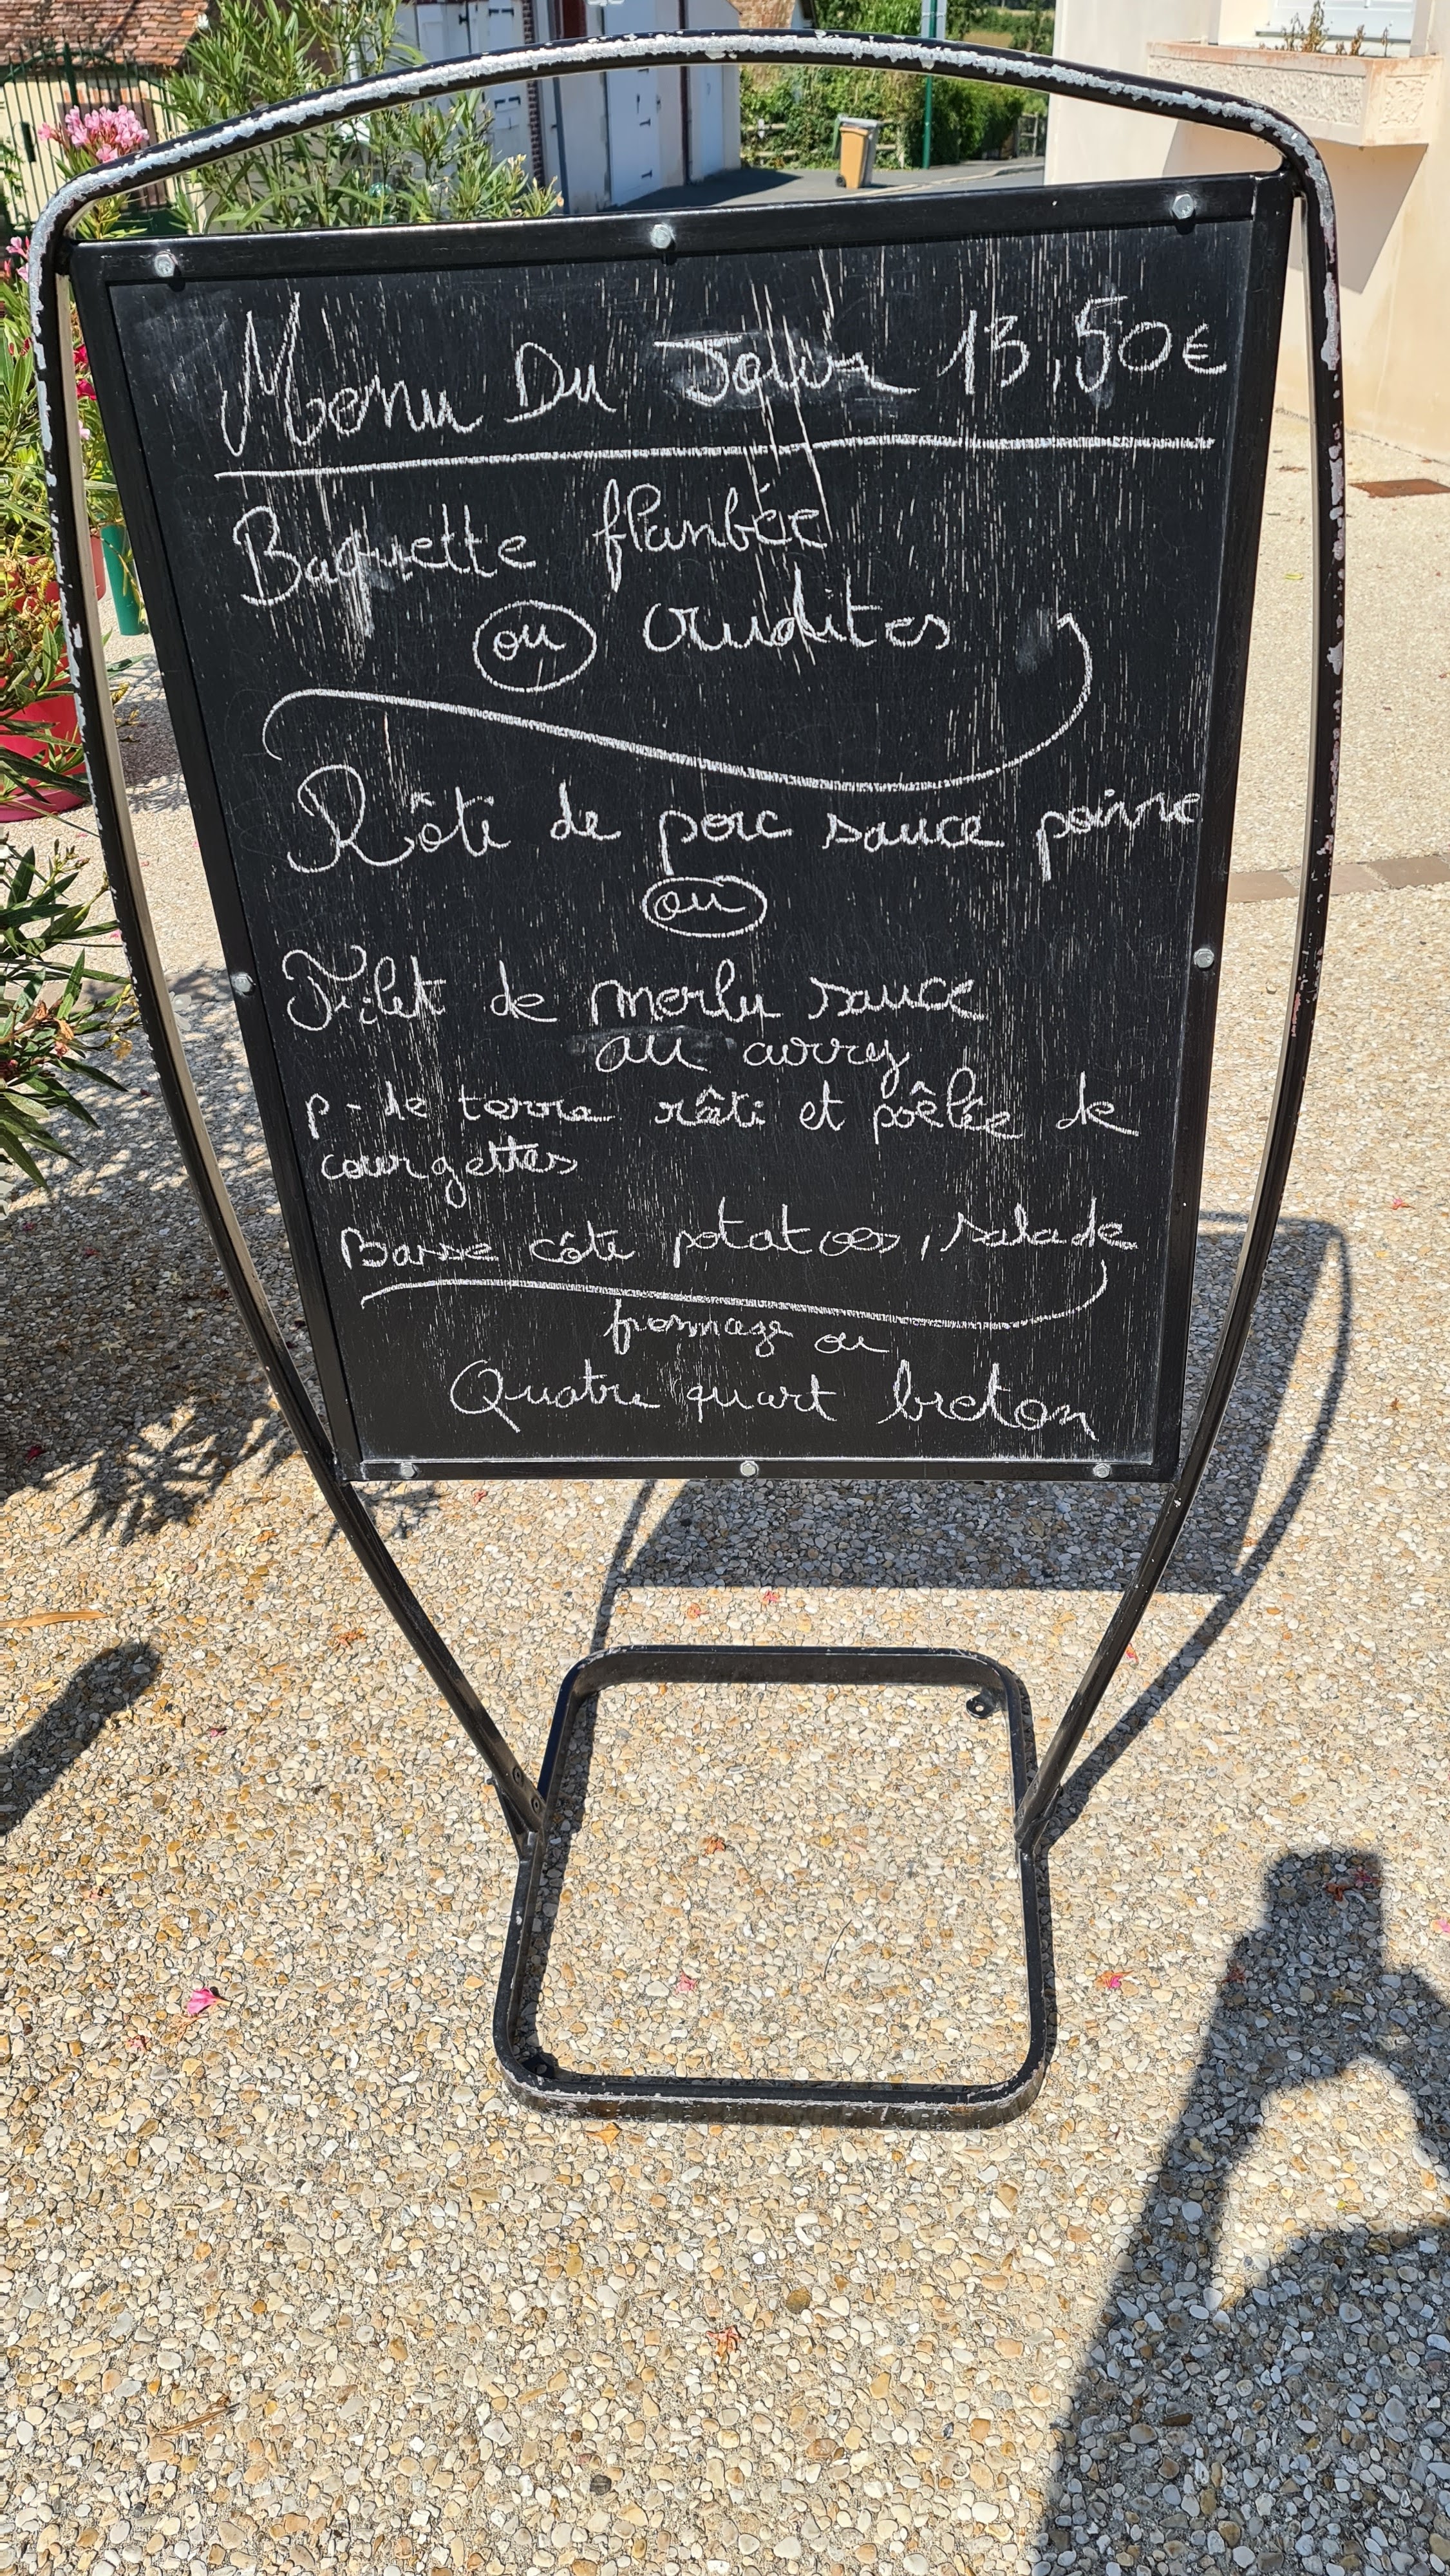 Menu Du Jour 13,50€
Baguette flambée
ou crudites
Rôti de porc sauce poivre
ou
Filet de merlu sauce
au curry
p-de terre rôti et poêlée de
courgettes
Basse côte potatoes, salade
fromage ou
Quatre quart breton